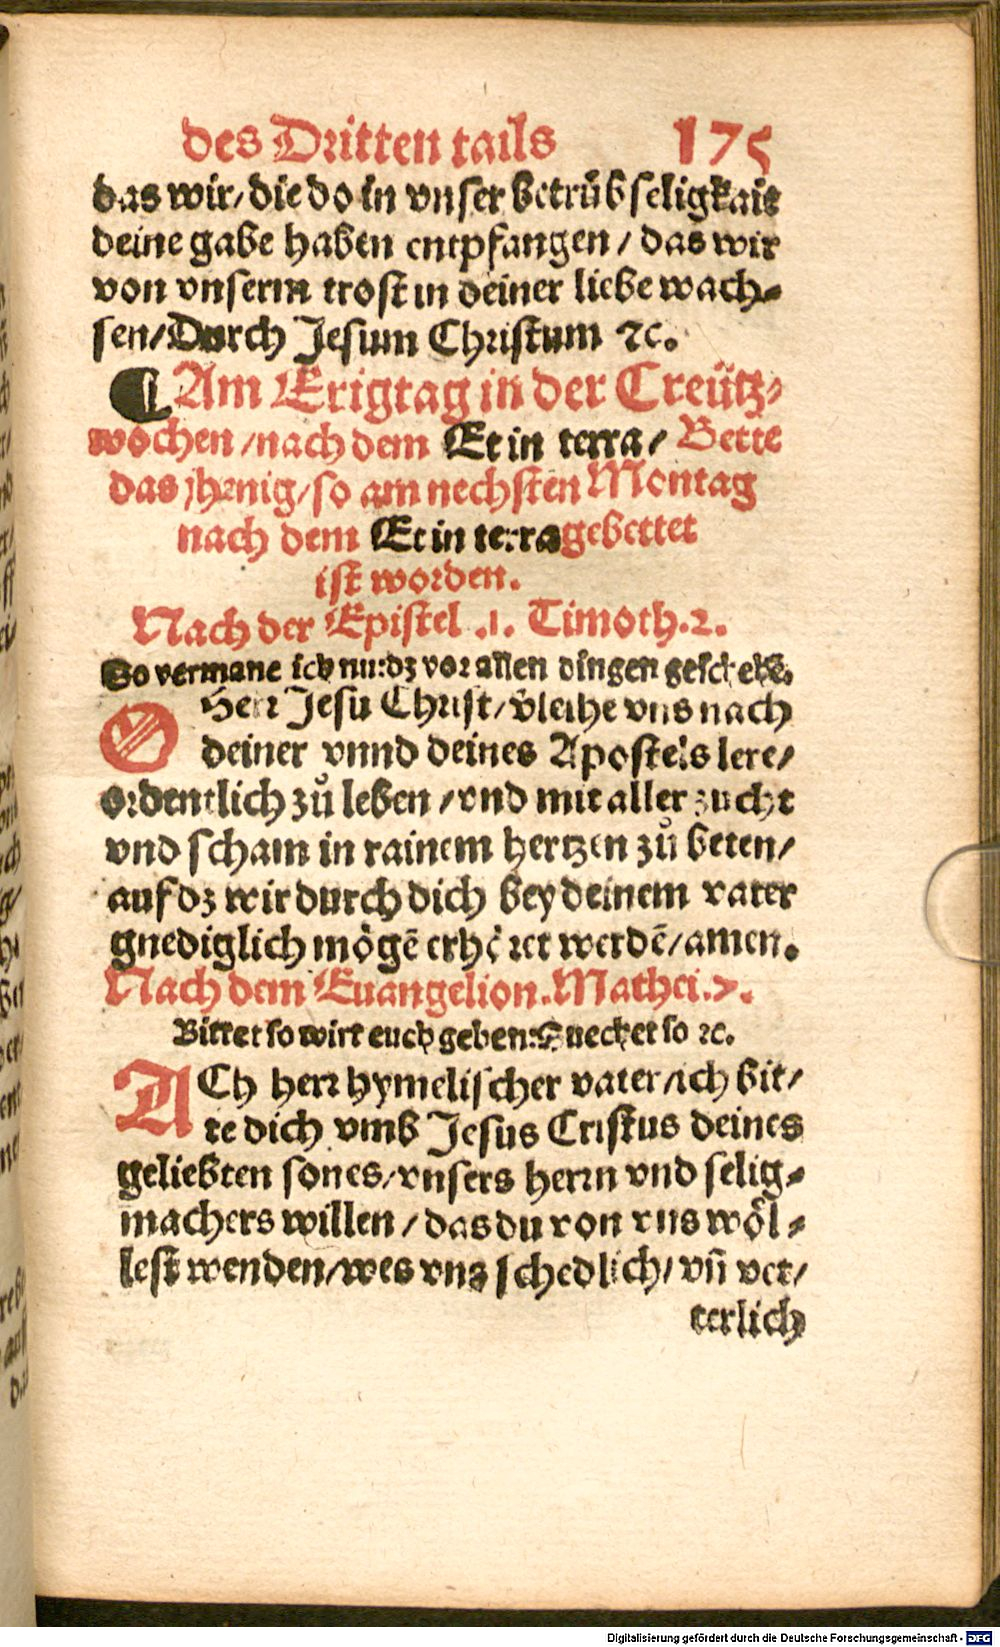 des Dritten tails 175
das wir/ die do in vnser betrübseligkait
deine gabe haben entpfangen / das wir
von vnserm trost in deiner liebe wach⸗
sen/ Durch Jesum Christum ⁊c.
¶ Am Erigtag in der Creütz⸗
wochen / nach dem Et in terra / Bette
das jhenig/ so am nechsten Montag
nach dem Et in terra gebettet
ist worden.
Nach der Epistel .1. Timoth. 2.
So vermane ich nu: dz vor allen dingen geschehe.
O Herr Jesu Christ/ v̈leihe vns nach
deiner vnnd deines Apostels lere/
ordentlich zů leben / vnd mit aller zucht
vnd scham in rainem hertzen zů beten/
auf dz wir durch dich bey deinem vater
gnediglich mögē erhöret werdē/ amen.
Nach dem Euangelion. Mathei. 7.
Bittet so wirt euch geben: Suechet so ⁊c.
ACh herr hymelischer vater/ ich bit/
te dich vmb Jesus Cristus deines
geliebten sones/ vnsers herrn vnd selig⸗
machers willen / das du von vns wöl⸗
lest wenden/ wes vns schedlich/ vñ vet/
terlich
Digitalisierung gefördert durch die Deutsche Forschungsgemeinschaft - DFG